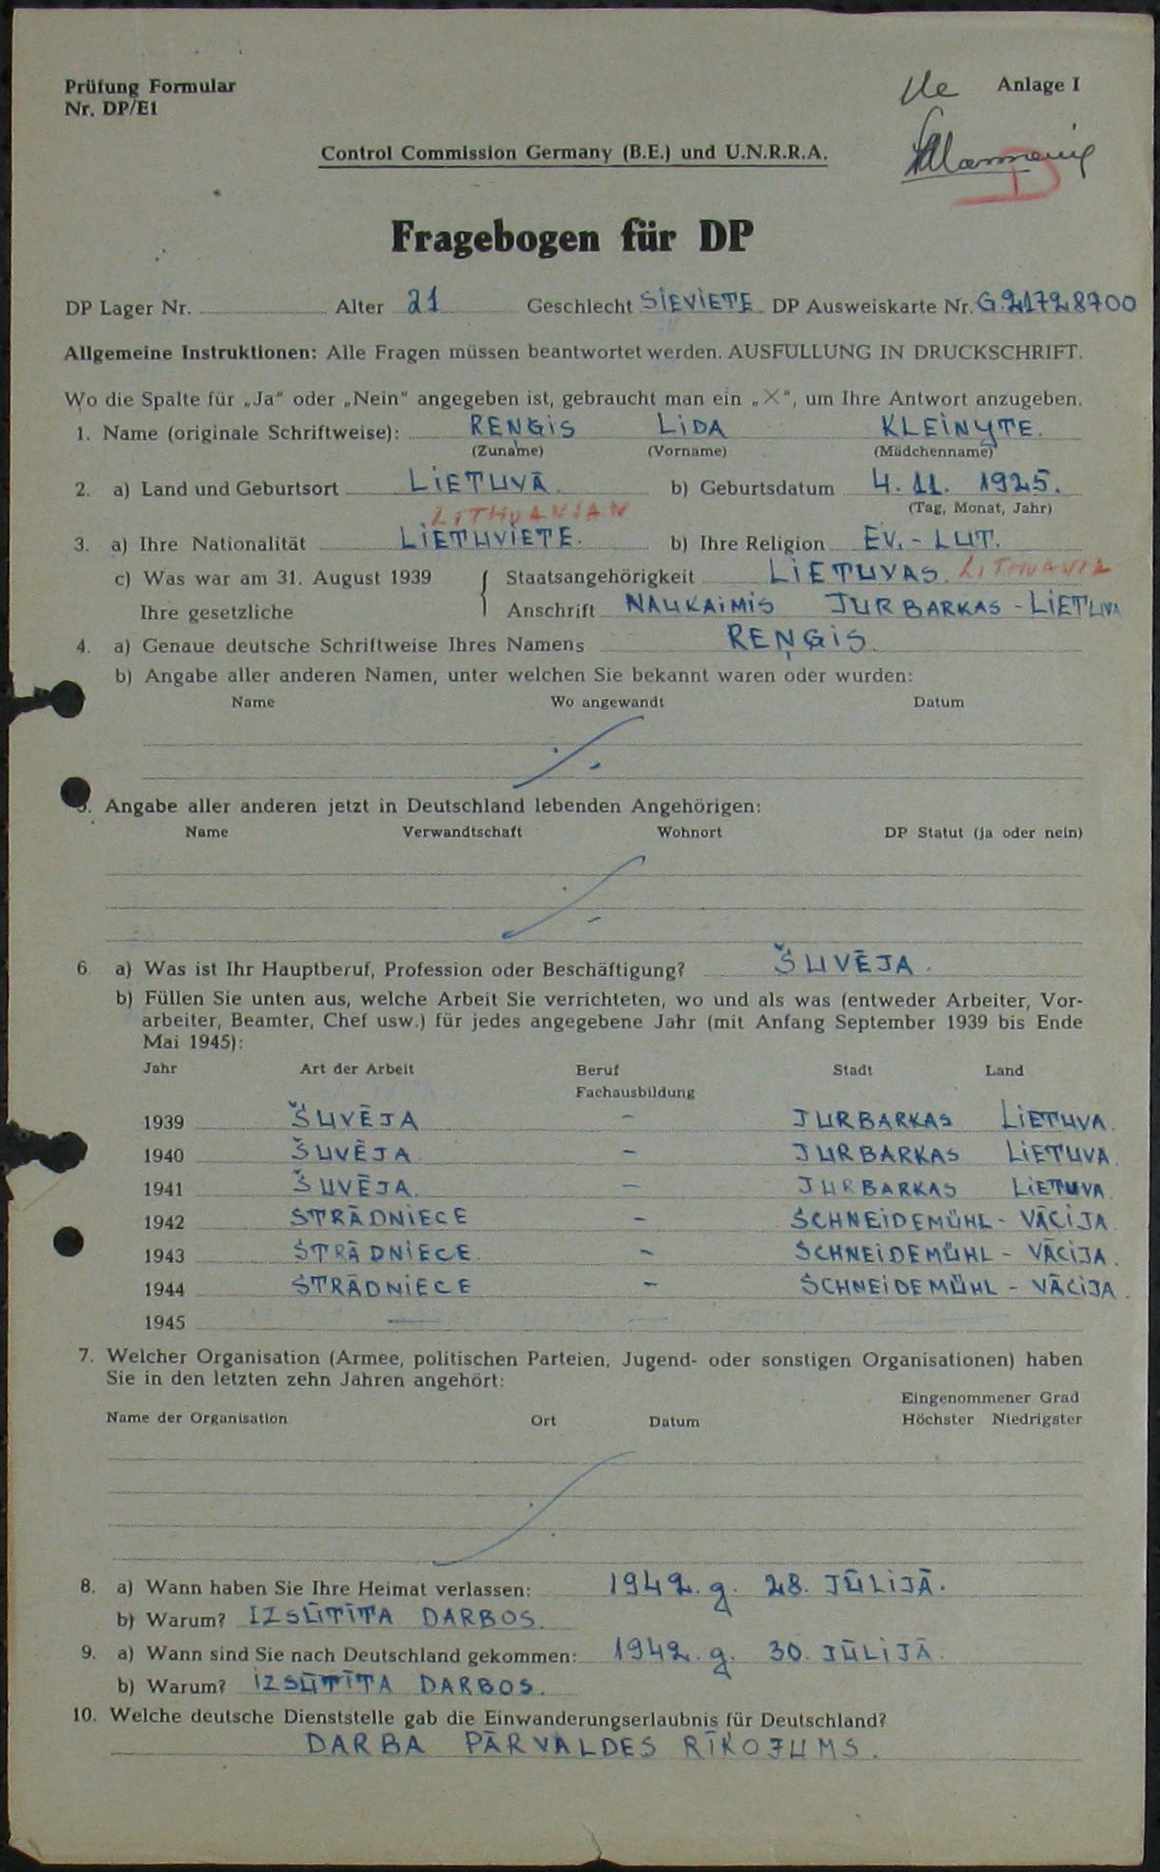 Prüfung Formular
Nr. DP/E1
Anlage I
Control Commission Germany (B.E.) und U.N.R.R.A.
Fragebogen für DP
DP Lager Nr. Alter 21 Geschlecht SIEVIETE DP Ausweiskarte Nr. G.21728700
Allgemeine Instruktionen: Alle Fragen müssen beantwortet werden. AUSFÜLLUNG IN DRUCKSCHRIFT.
Wo die Spalte für „Ja" oder „Nein" angegeben ist, gebraucht man ein „X", um Ihre Antwort anzugeben.
1. Name (originale Schriftweise): REŅĢIS LIDA KLEINYTE.
(Zuname) (Vorname) (Mädchenname)
2. a) Land und Geburtsort LIETUVĀ. b) Geburtsdatum 4. 11. 1925.
(Tag, Monat, Jahr)
LITHUANIAN
3. a) Ihre Nationalität LIETUVIETE. b) Ihre Religion EV. - LUT.
c) Was war am 31. August 1939 Staatsangehörigkeit LIETUVAS. LITHUANIA
Ihre gesetzliche Anschrift NAUKAIMIS JURBARKAS - LIETUVA
4. a) Genaue deutsche Schriftweise Ihres Namens REŅĢIS.
b) Angabe aller anderen Namen, unter welchen Sie bekannt waren oder wurden:
Name Wo angewandt Datum
5. Angabe aller anderen jetzt in Deutschland lebenden Angehörigen:
Name Verwandtschaft Wohnort DP Statut (ja oder nein)
6 a) Was ist Ihr Hauptberuf, Profession oder Beschäftigung? ŠUVĒJA.
b) Füllen Sie unten aus, welche Arbeit Sie verrichteten, wo und als was (entweder Arbeiter, Vor-
arbeiter, Beamter, Chef usw.) für jedes angegebene Jahr (mit Anfang September 1939 bis Ende
Mai 1945):
Jahr Art der Arbeit Beruf Stadt Land
Fachausbildung
1939 ŠUVĒJA - JURBARKAS LIETUVA.
1940 ŠUVĒJA - JURBARKAS LIETUVA.
1941 ŠUVĒJA. - JURBARKAS LIETUVA
1942 STRĀDNIECE - SCHNEIDEMÜHL - VĀCIJA.
1943 STRĀDNIECE. - SCHNEIDEMÜHL - VĀCIJA.
1944 STRĀDNIECE - SCHNEIDEMÜHL - VĀCIJA.
1945 —
7. Welcher Organisation (Armee, politischen Parteien, Jugend- oder sonstigen Organisationen) haben
Sie in den letzten zehn Jahren angehört:
Eingenommener Grad
Name der Organisation Ort Datum Höchster Niedrigster
8. a) Wann haben Sie Ihre Heimat verlassen: 1942. g. 28. JŪLIJĀ.
b) Warum? IZSŪTĪTA DARBOS.
9. a) Wann sind Sie nach Deutschland gekommen: 1942. g. 30. JŪLIJĀ.
b) Warum? IZSŪTĪTA DARBOS.
10. Welche deutsche Dienststelle gab die Einwanderungserlaubnis für Deutschland?
DARBA PĀRVALDES RĪKOJUMS.